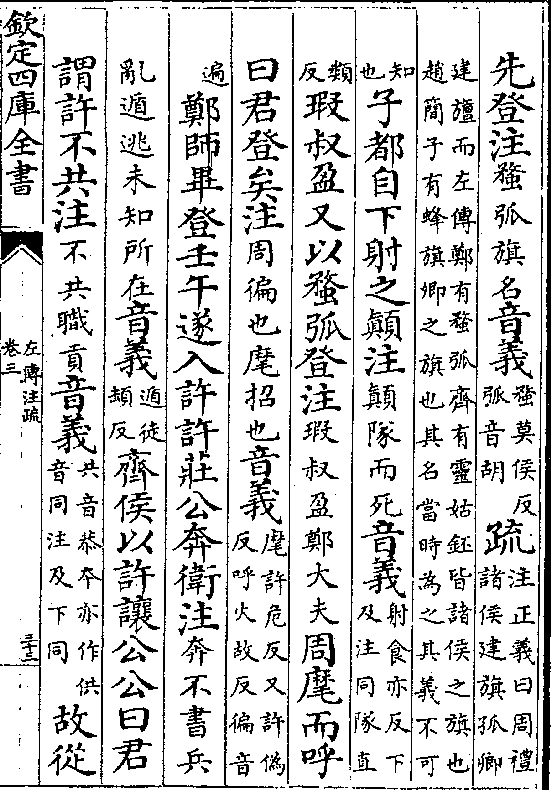 先登注蝥弧旗名音義蝥莫侯反弧音胡疏注正義曰周禮諸侯建旗孤卿
建旜而左傳鄭有蝥弧齊有靈姑鉟皆諸侯之旗也趙簡子有蜂旗卿之旗也其名當時為之其義不可
知也子都自下射之顛注顛隊而死音義射食亦反下及注同隊直
類反瑕叔盈又以蝥弧登注瑕叔盈鄭大夫周麾而呼
曰君登矣注周徧也麾招也音義麾許危反又許偽反呼火故反徧音
遍鄭師畢登壬午遂入許許莊公奔衛注奔不書兵
亂遁逃未知所在音義遁徒頡反齊侯以許讓公公曰君
謂許不共注不共職貢音義共音恭夲亦作供音同注及下同故從
欽定四庫全書
左傳注疏
卷三
三十三